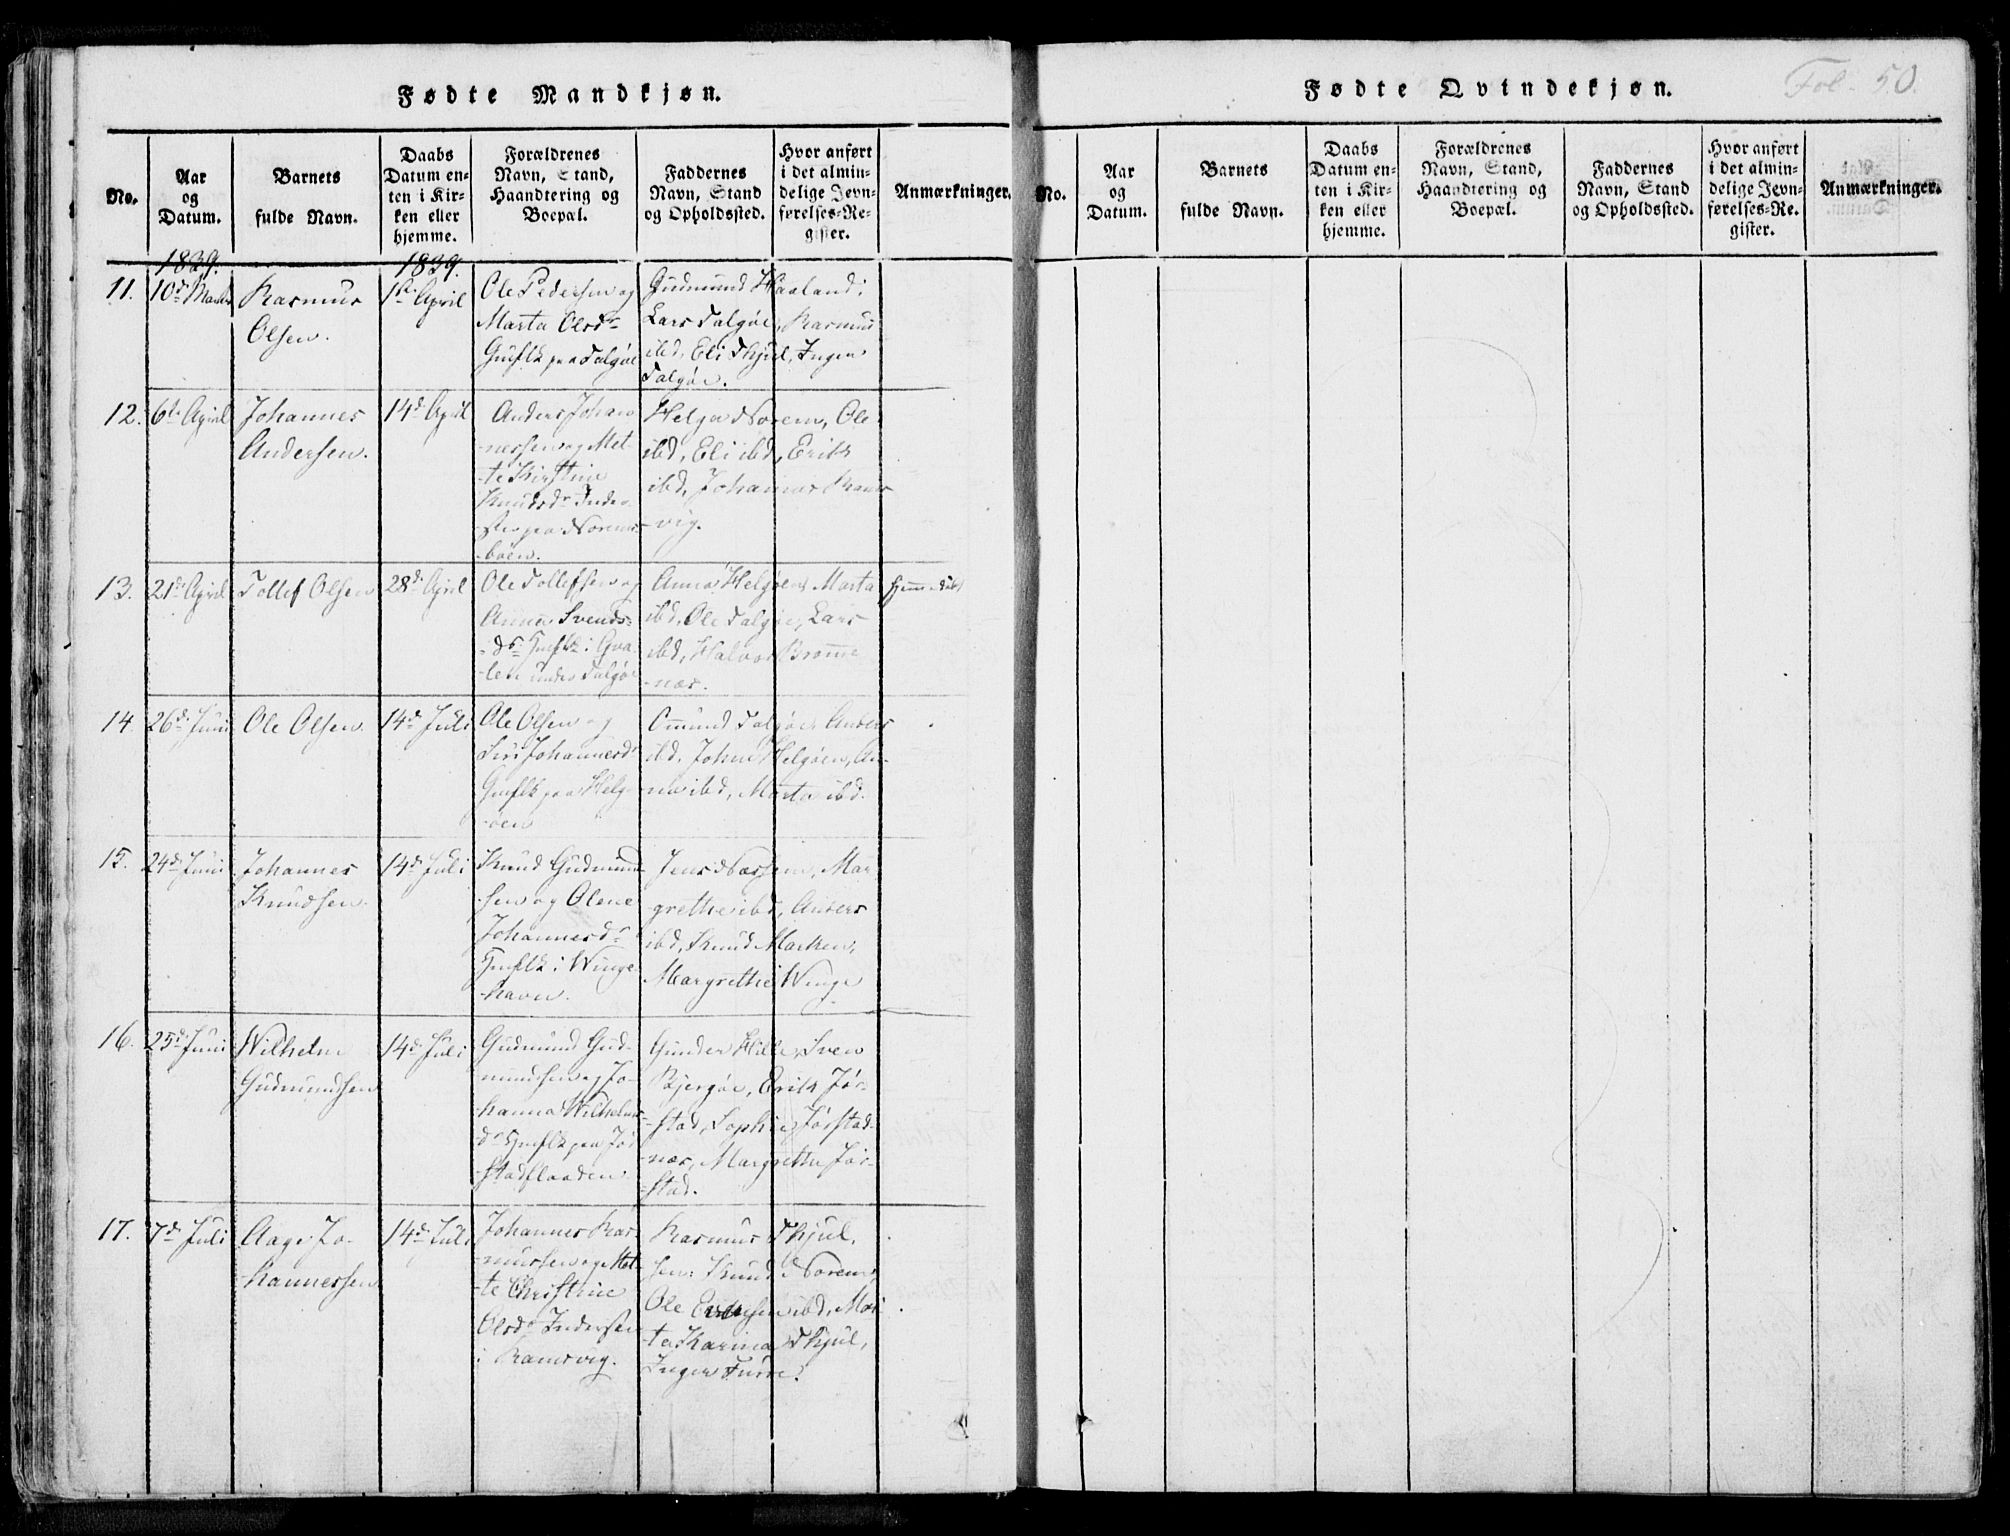 Fødte Mandkjøn.
No.
Aar
og
Datum.
Barnets
fulde Navn.
Daabs
Datum en-
ten i Kir-
ken eller
hjemme.
Forældrenes
Navn, Stand,
Haandtering og
Boepæl.
Faddernes
Navn, Stand
og Opholdssted.
Hvor anført
i det almin-
delige Jevn-
førelses-Re-
gister.
Anmærkninger.
1839.
1839.
11.
10d Marts
Rasmus
Olsen.
1ste April
Ole Pedersen og
Marta Olsdr
Gmflk paa Talgøe
Gudmund Haaland,
Lars Talgøe, Rasmus
ibd, Eli Thjul, Inger
Talgøe.
12.
6te April
Johannes
Andersen.
14d April
Anders Johan-
nessen og Met-
te Kirstine
Knudsdr Inder-
ster paa Norem-
bøen.
Helga Norem, Ole
ibd, Eli ibd, Erik
ibd, Johannes Rams-
vig.
13.
21d April
Tollef Olsen
28d April
Ole Tollefsen og
Anna Svends-
dr Gmflk i Qva-
len under Talgøe
Anna Helgøen, Marta
ibd, Ole Talgøe, Lars
ibd, Halvor Bromme-
næs.
hjemmedøbt
14.
26d Juni
Ole Olsen
14d Juli
Ole Olsen og
Siri Johannesdr
Gmflk paa Helg-
øen
Omund Talgøe, Anders
ibd, John Helgøen, An-
na ibd, Marta ibd.
15.
24d Juni
Johannes
Knudsen.
14d Juli
Knud Gudmund-
sen og Olene
Johannesdr
Gmflk i Winge-
havn.
Jens Næssen, Mar-
grethe ibd, Anders
ibd, Knud Marken,
Margrethe Winge
16.
25d Juni
Wilhelm
Gudmundsen
14d Juli
Gudmund Gud-
mundsen og Jo-
hanna Wilhelms-
dr Gmflk paa Jør-
stadflaaden.
Gunder Hille, Sven
Bjergøe, Erik Jør-
stad, Sophie Jørstad-
næs, Margrethe Jør-
stad.
17.
7d Juli
Aage Jo-
hannessen
14d Juli
Johannes Ras-
mussen og Met-
te Christine
Olsdr Inderster
i Ramsvig.
Rasmus Thjul,
sen. Knud Norem,
Ole ibd, Mar-
ta Karina Thjul,
Inger Furre.
Fødte Qvindekjøn.
Fol. 50.
No.
Aar
og
Datum.
Barnets
fulde Navn.
Daabs
Datum en-
ten i Kir-
ken eller
hjemme.
Forældrenes
Navn, Stand,
Haandtering og
Boepæl.
Faddernes
Navn, Stand
og Opholdssted.
Hvor anført
i det almin-
delige Jevn-
førelses-Re-
gister.
Anmærkninger.